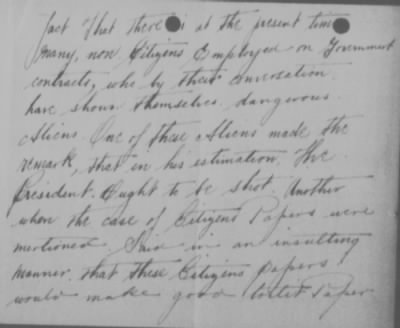 fact that there is at the present time
many, non Citizens Employed on Government
contracts, who by their conversation.
have shown themselves. dangerous.
Aliens. One of these Aliens made the
remark, that in his estimation. The
President. Ought to be shot. Another
when the case of Citizens Papers were
mentioned. Said in an insulting
manner. that these Citizens papers
would make good toilet Paper